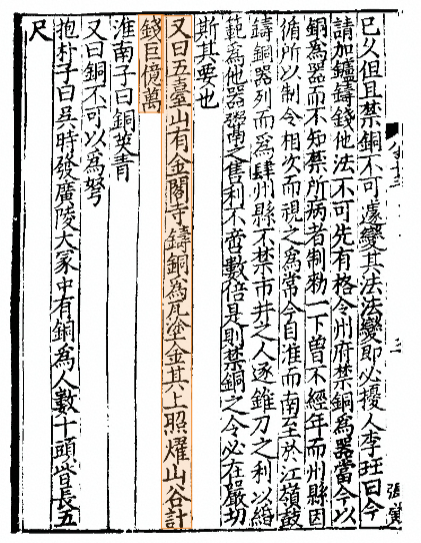 已久但且禁銅不可遽變其法法變即必擾人李珏曰今
請加鑪鑄錢他法不可先有格令州府禁銅爲器當今以
銅爲器而不知禁所病者制勑一下曽不經年而州縣因
循所以制令相次而視之爲常今自淮而南至於江嶺鼓
鑄銅器列而爲肆州縣不禁市井之人逐錐刀之利以緡
範爲他器鬻之售利不啻數倍是則禁銅之令必在嚴切
斯其要也
又曰五臺山有金閣寺鑄銅爲瓦塗金其上照耀山谷計
錢巨億萬
淮南子曰銅英青
又曰銅不可以爲弩
抱朴子曰吳時發廣陵大冢中有銅爲人數十頭皆長五
尺